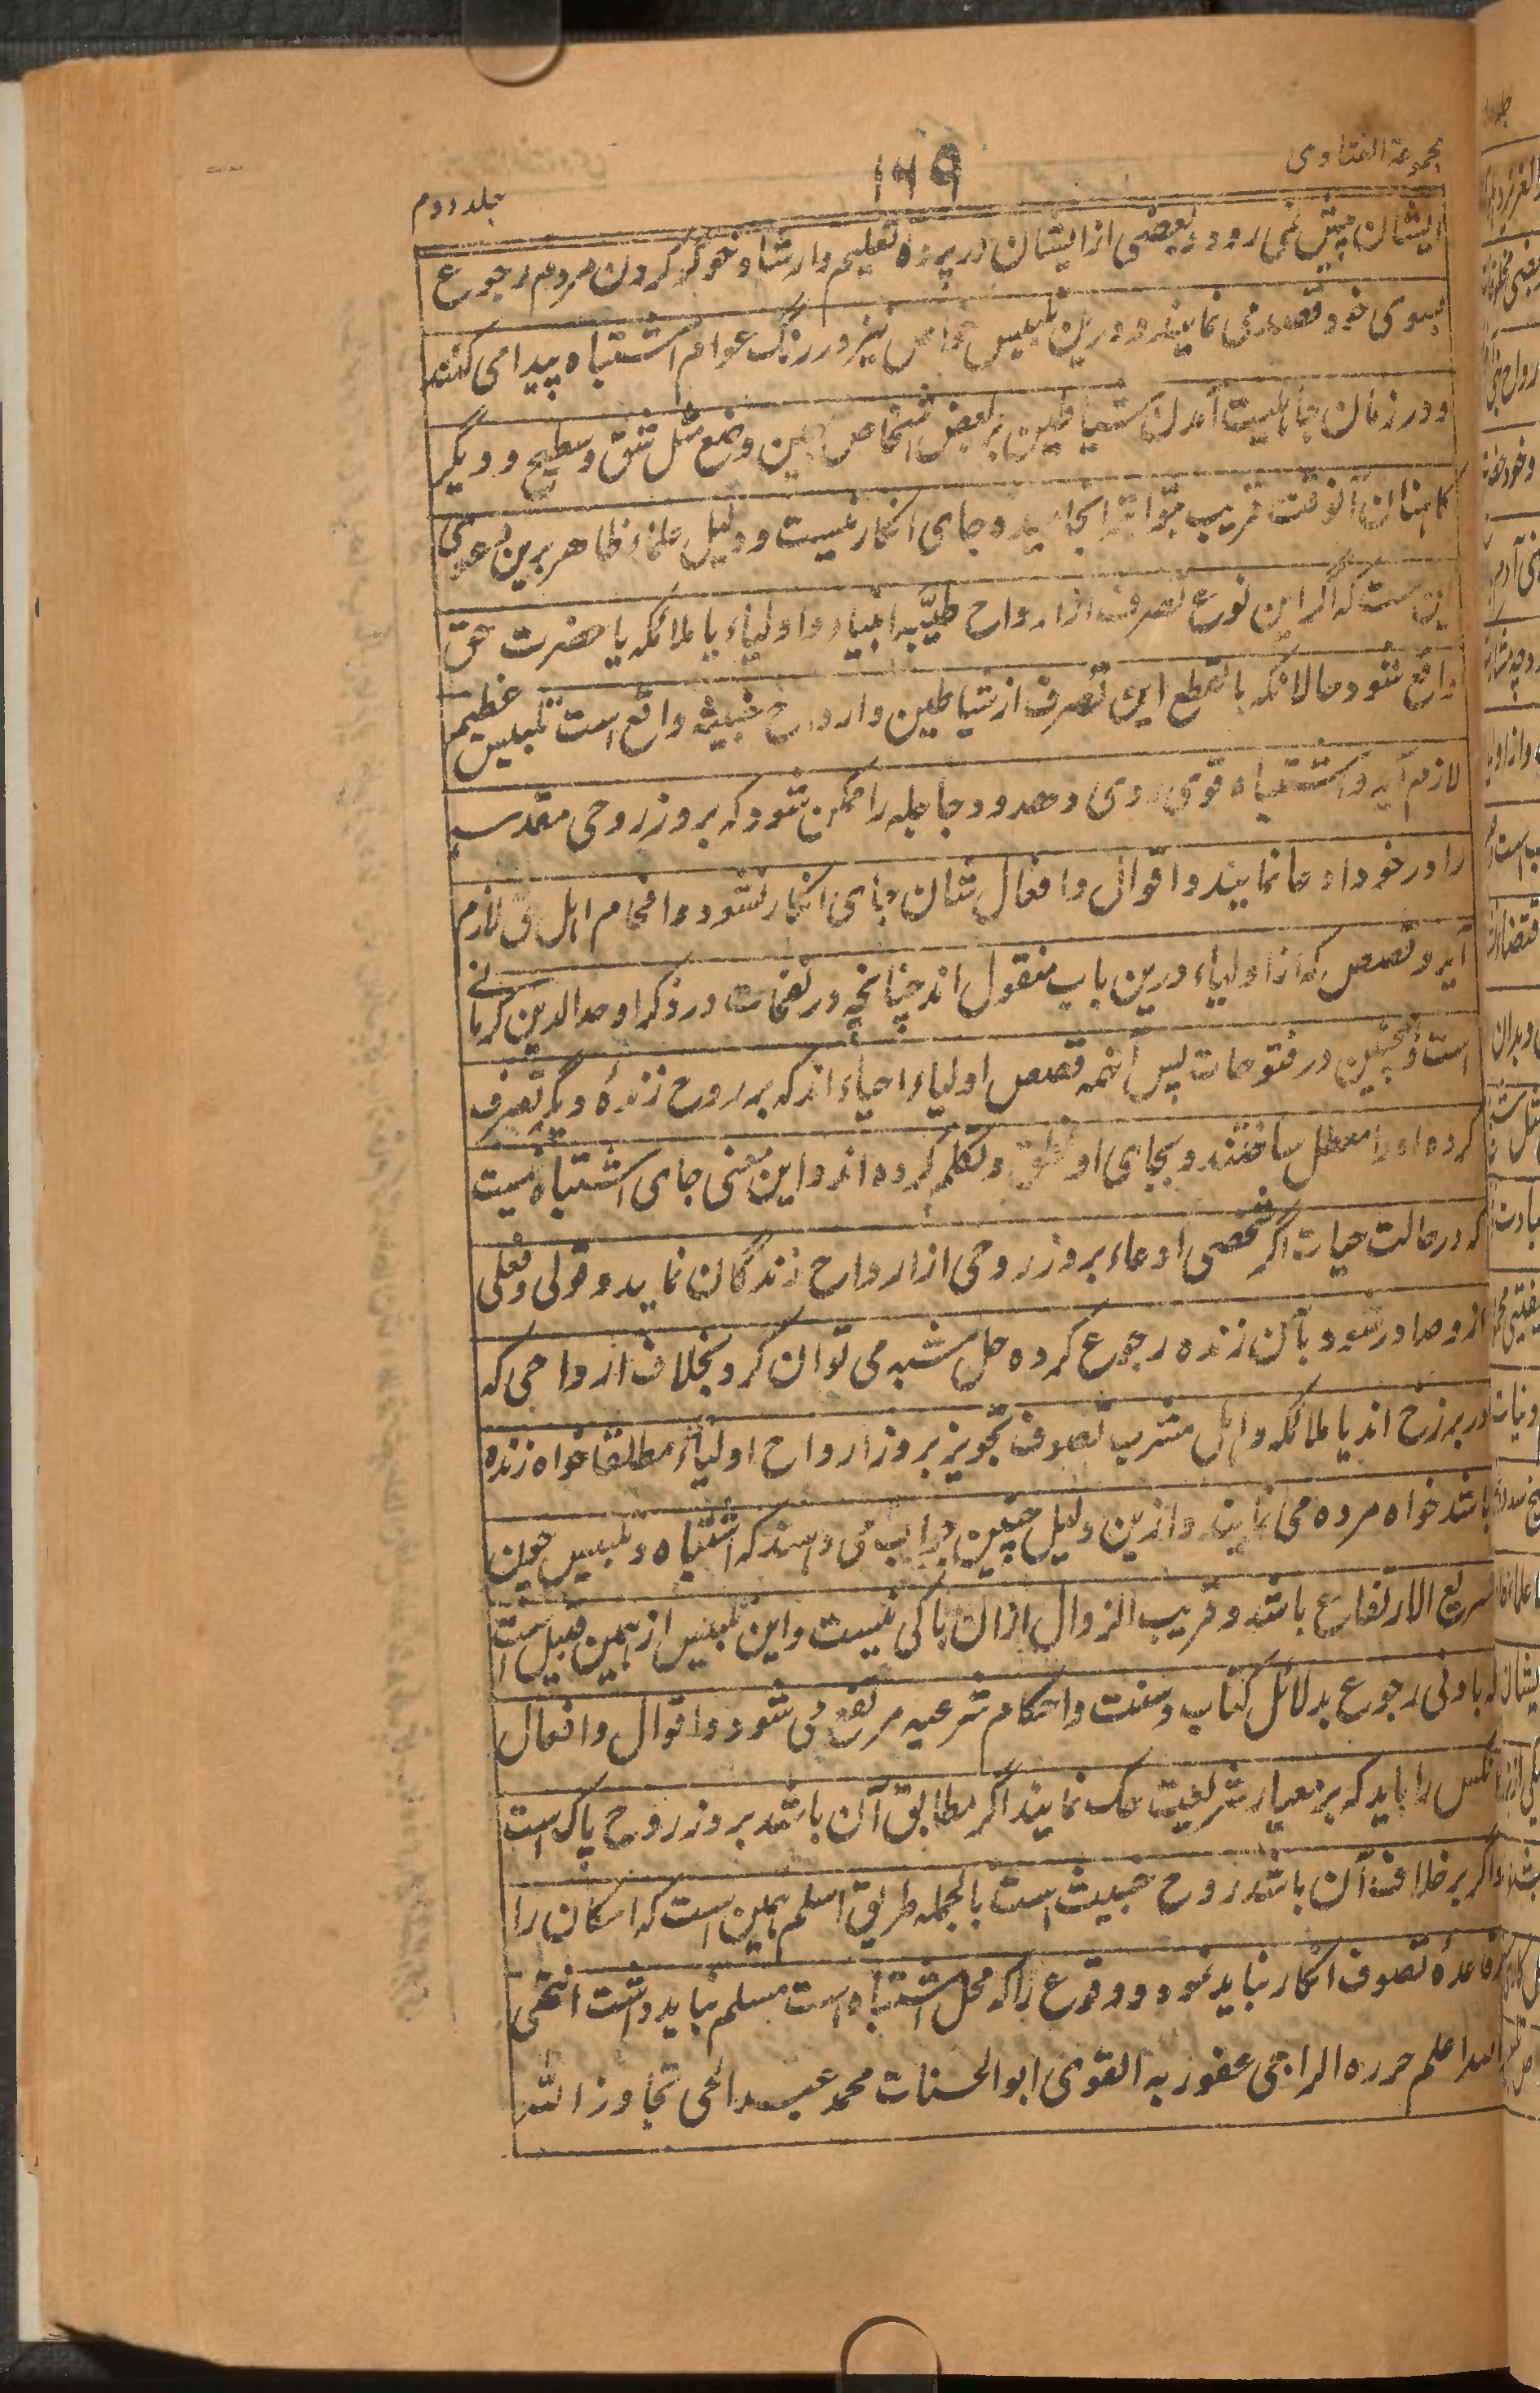 مجموعة الفتاوی
۱۴۹
جلد دوم
ایشان پیش نمی رود و بعضی از ایشان در پرده تعلیم و ارشاد خوگر کردن مردم رجوع
بسوی خود قصد می نمایند و درین تلبیس خواص نیز در رنگ عوام اشتباه پیدا می کنند
و در زمان جاهلیت آمدن شیاطین بر بعض اشخاص همین وضع مثل شق و سطیح و دیگر
کاهنان آنوقت قریب بتواتر انجامیده جای انکار نیست و دلیل علماء ظاهر برین دعوی
این ست که اگر این نوع تصرف از ارواح طیّبه انبیاء و اولیاء یا ملائکه یا حضرت حق
واقع شود حالانکه بالقطع این تصرف از شیاطین و ارواح خبیثه واقع است تلبیس عظیم
لازم آید و اشتباه قوی روی دهد و دجاجله را ممکن شود که بروز روحی مقدسه
را در خود ادعا نمایند و اقوال و افعال شان جای انکار نشود و افحام اهل حق لازم
آید و قصص که از اولیاء درین باب منقول اند چنانچه در نفحات در ذکر اوحد الدین کرمانے
است و همچنین در فتوحات پس آنهمه قصص اولیاء احیاء اند که بر روح زندهٔ دیگر تصرف
کرده او را معطل ساختند و بجای او نطق و تکلم کرده اند و این معنی جای اشتباه نیست
که در حالت حیات اگر شخصی ادعاء بروز روحی از ارواح زندگان نماید و قولی و فعلی
از و صادر شود بآن زنده رجوع کرده حل مشبه می توان کرد بخلاف ارواحی که
در برزخ اند یا ملائکه و اهل مشرب تصوف تجویز بروز ارواح اولیاء مطلقا خواه زنده
باشد خواه مرده می نمایند و ازین دلیل چنین جواب می دهند که اشتباه و تلبیس چون
سریع الارتفاع باشد و قریب الزوال ازان باکی نیست و این تلبیس از همین قبیل است
که بادنی رجوع بدلائل کتاب و سنت و احکام شرعیه مرتفع می شود و اقوال و افعال
آنکس را باید که بر معیار شریعت حک نمایند اگر مطابق آن باشد بروز روح پاک است
و اگر برخلاف آن باشد روح خبیث است بالجمله طریق اسلم همین است که امکان را
بر قاعدهٔ تصوف انکار نباید نمود و وقوع را که محل اشتباه است مسلم نباید داشت انتهی
والله اعلم حرره الراجی عفو ربه القوی ابو الحسنات محمد عبد الحی تجاوز الله